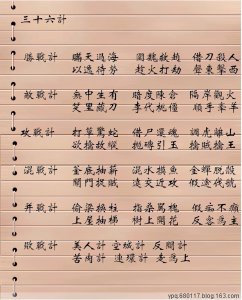 三十六計
勝戰計 瞞天過海 圍魏救趙 借刀殺人
以逸待勞 趁火打劫 聲東擊西
敵戰計 無中生有 暗度陳倉 隔岸觀火
笑里藏刀 李代桃僵 順手牽羊
攻戰計 打草驚蛇 借尸還魂 調虎離山
欲擒故縱 拋磚引玉 擒賊擒王
混戰計 釜底抽薪 混水摸魚 金蟬脫殼
關門捉賊 遠交近攻 假途伐虢
并戰計 偷梁換柱 指桑罵槐 假痴不癲
上屋抽梯 樹上開花 反客為主
敗戰計 美人計 空城計 反間計
苦肉計 連環計 走為上
ypq.680117.blog.163.com